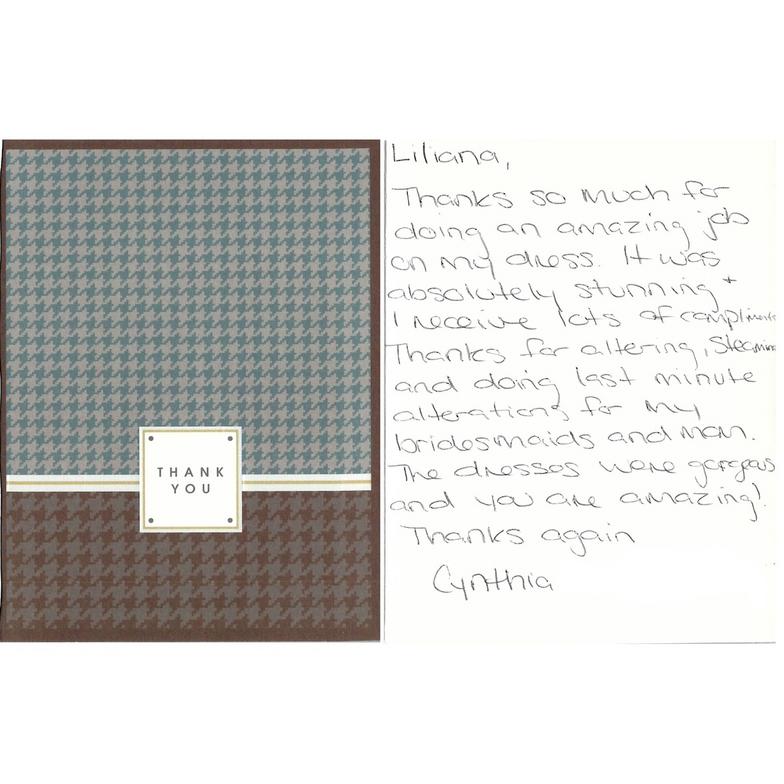 THANK
YOU
Liliana,
Thanks so much for
doing an amazing job
on my dress. It was
absolutely stunning +
I receive lots of compliments
Thanks for altering, Steaming
and doing last minute
alterations for my
bridesmaids and mom.
The dresses were gorgeous
and you are amazing!
Thanks again
Cynthia